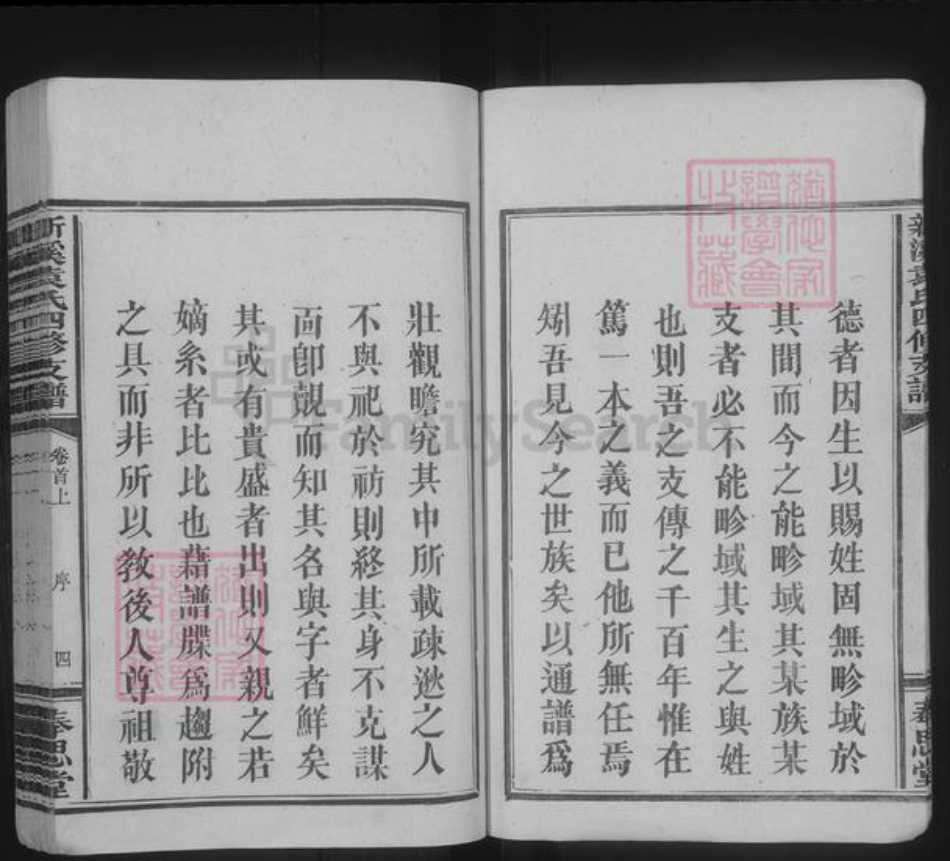 德者因生以賜姓固無畛域於
其間而今之能畛域其某族某
支者必不能畛域其生之與姓
也則吾之支傳之千百年惟在
篤一本之義而已他所無任焉
矧吾見今之世族矣以通譜爲
新溪袁氏四修支譜
卷首上
序
四
奉思堂
壯觀瞻究其中所載疎逖之人
不與祀於祊則終其身不克謀
面卽覿而知其名與字者鮮矣
其或有貴盛者出則又親之若
嫡系者比比也藉譜牒爲趨附
之具而非所以敎後人尊祖敬
新溪袁氏四修支譜
奉思堂
FamilySearch